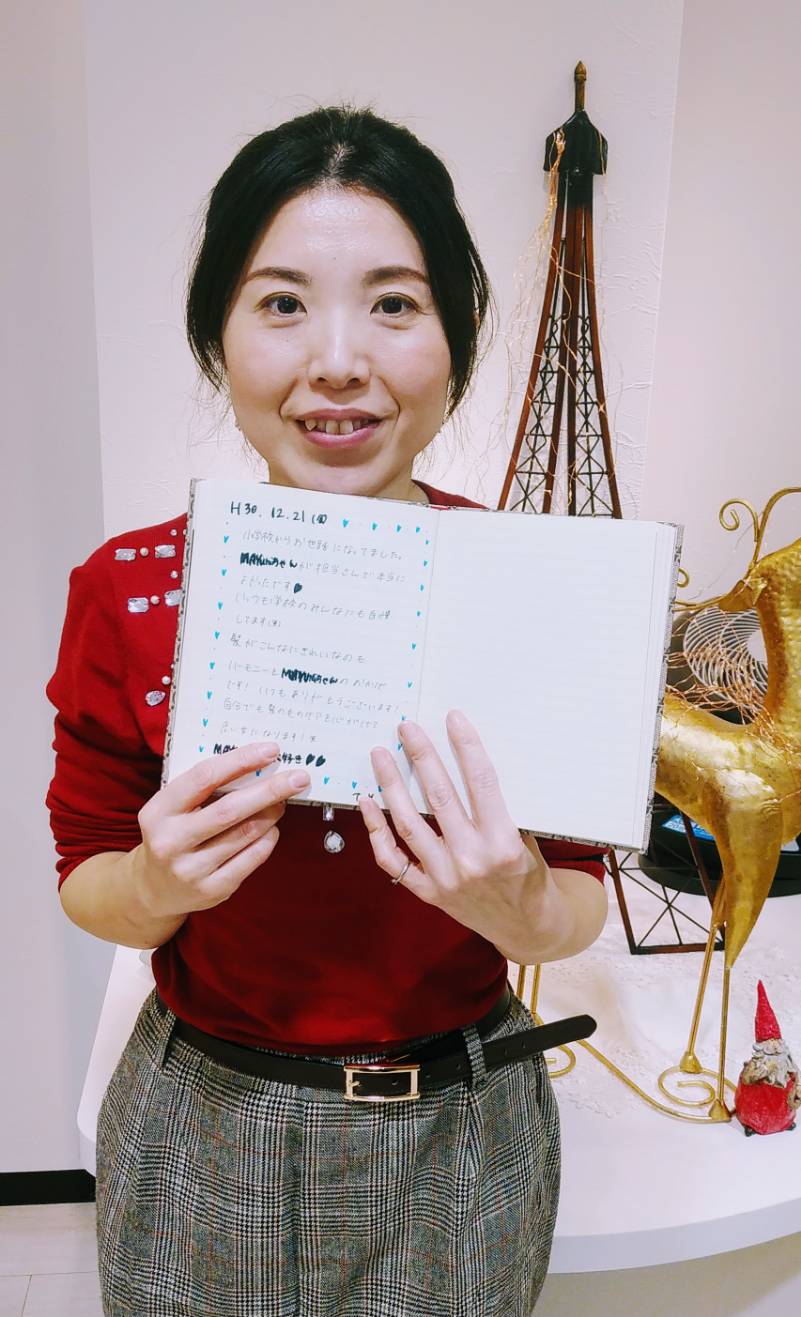 H30.12.21(金)
小学校からお世話になってました。
MAYUMIちゃんが担当さんで本当に
よかったです♥
いつも学校のみんなにも自慢
してます(笑)
髪がこんなにきれいなのも
ハーモニーとMAYUMIちゃんのおかげ
です! いつもありがとうございます!
自分でも髪のものケアを心がけて
良い女になります!笑
大好き♥♥